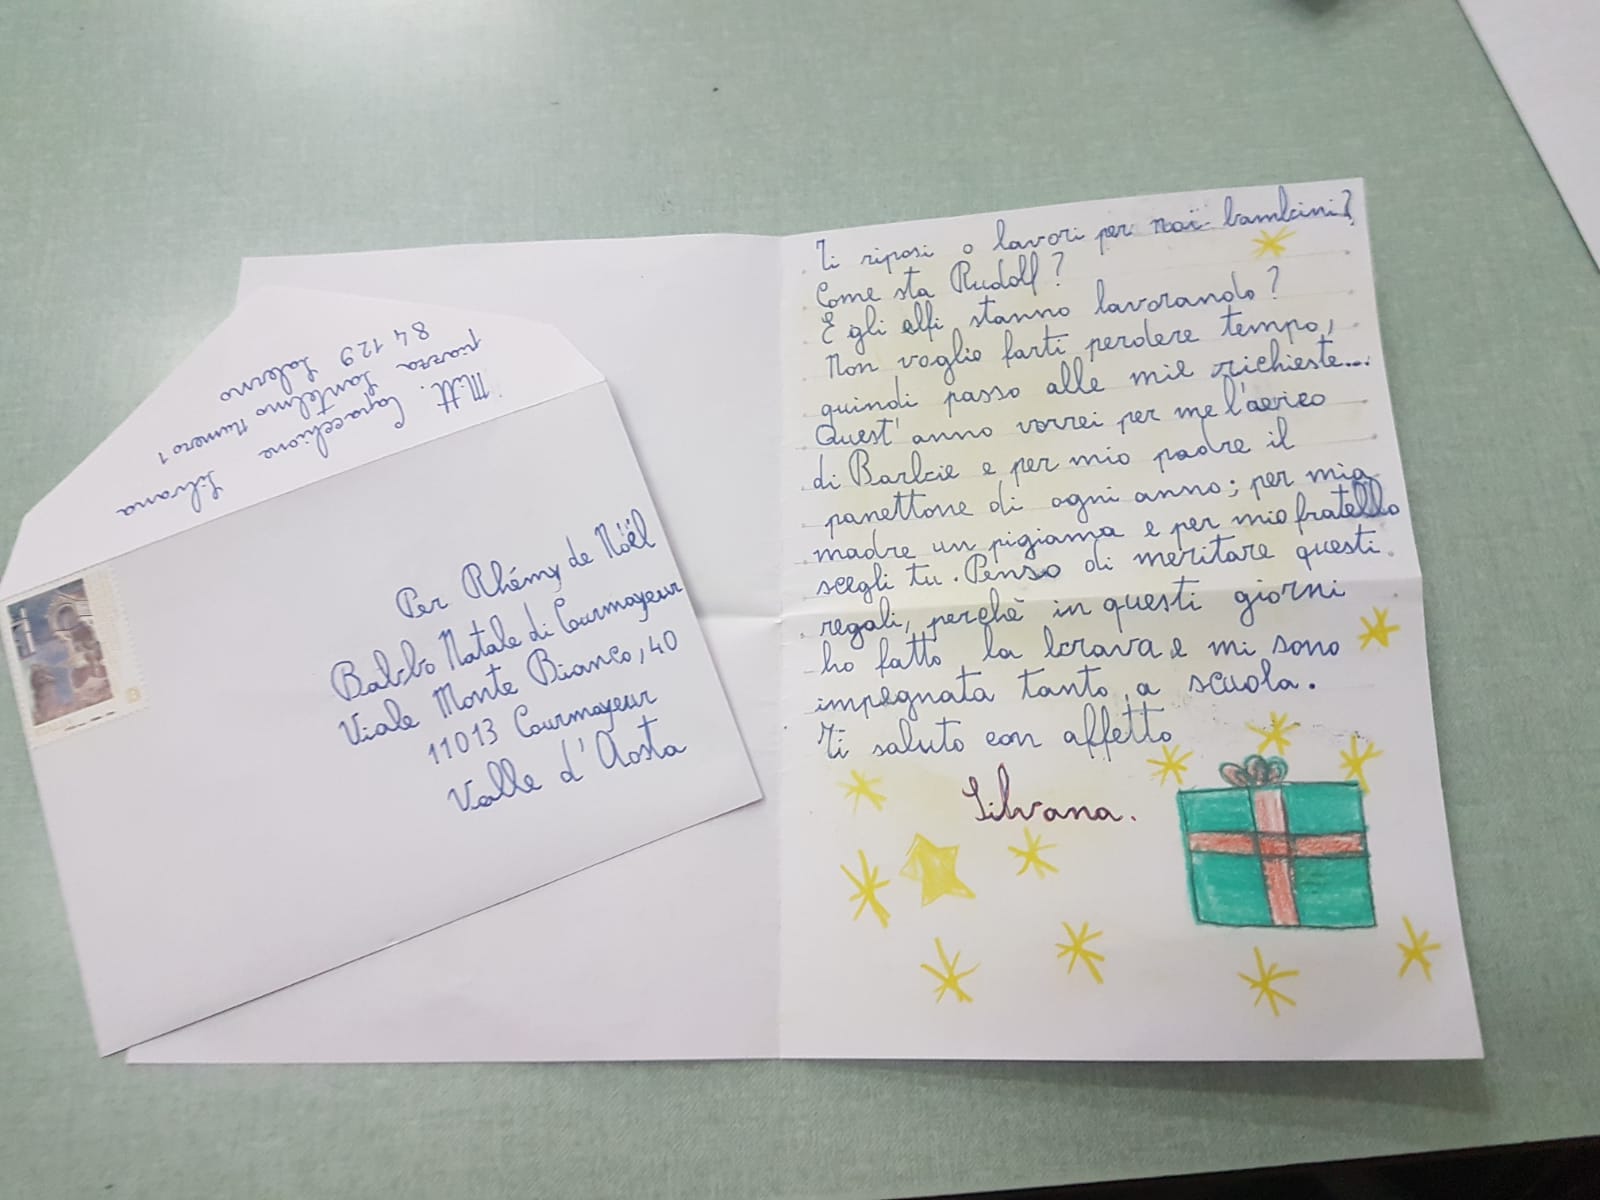 Mitt. Capacchione Silvana
piazza Santelmo numero 1
84129 Salerno
Per Rhémy de Nöel
Babbo Natale di Courmayeur
Viale Monte Bianco, 40
11013 Courmayeur
Valle d'Aosta
Ti riposi o lavori per noi bambini?
Come sta Rudolf?
E gli elfi stanno lavorando?
Non voglio farti perdere tempo,
quindi passo alle mie richieste...
Quest'anno vorrei per me l'aereo
di Barbie e per mio padre il
panettone di ogni anno; per mia
madre un pigiama e per mio fratello
scegli tu. Penso di meritare questi
regali, perchè in questi giorni
ho fatto la brava e mi sono
impegnata tanto a scuola.
Ti saluto con affetto
Silvana.